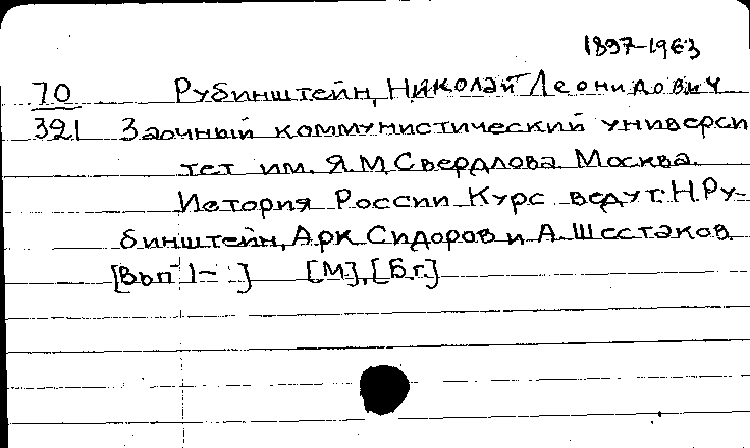 1897-1963
70 Рубинштейн, Николай Леонидович
321 Заочный коммунистический универси
тет им. Я.М. Свердлова. Москва.
История России. Курс ведут: Н.Ру-
бинштейн, Арк. Сидоров и А. Шестаков.
[Вып 1- ] [М], [Б.г.]